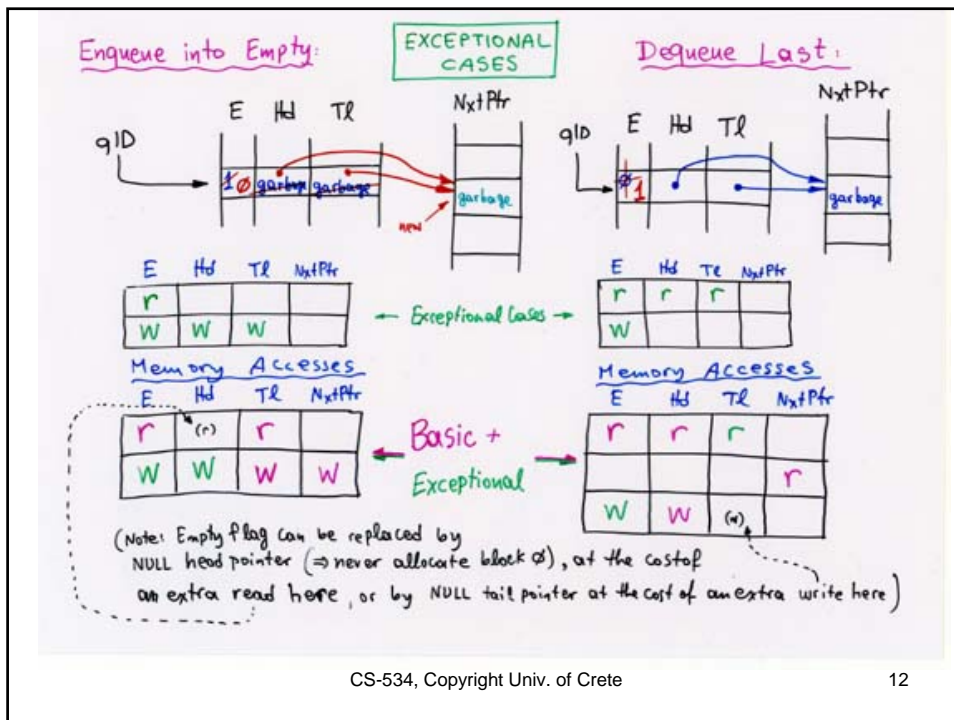 Enqueue into Empty:
EXCEPTIONAL
CASES
Dequeue Last:
qID
E Hd Tl
NxtPtr
1 Ø garbage garbage
garbage
new
qID
E Hd Tl
NxtPtr
Ø 1
garbage
E Hd Tl NxtPtr
r
W W W
← Exceptional Cases →
E Hd Tl NxtPtr
r r r
W
Memory Accesses
E Hd Tl NxtPtr
r (r) r
W W W W
Basic +
Exceptional
Memory Accesses
E Hd Tl NxtPtr
r r r
r
W W (w)
(Note: Empty flag can be replaced by
NULL head pointer (⇒ never allocate block Ø), at the cost of
an extra read here, or by NULL tail pointer at the cost of an extra write here)
CS-534, Copyright Univ. of Crete 12